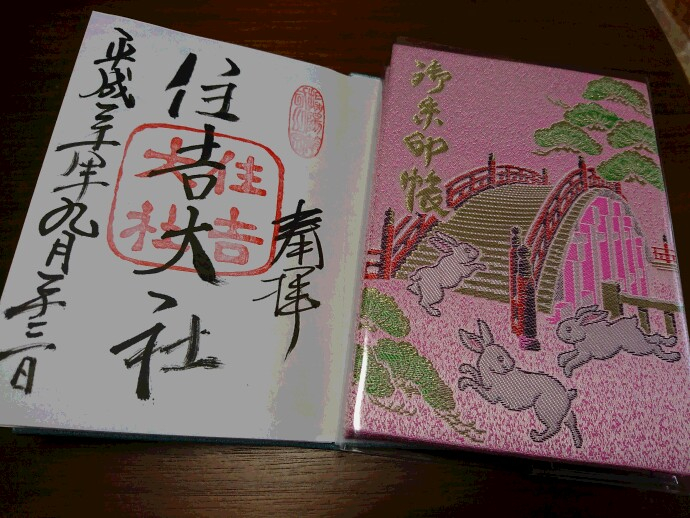 奉拝
住吉大社
住吉
大社
平成三十年九月二十三日
御朱印帳